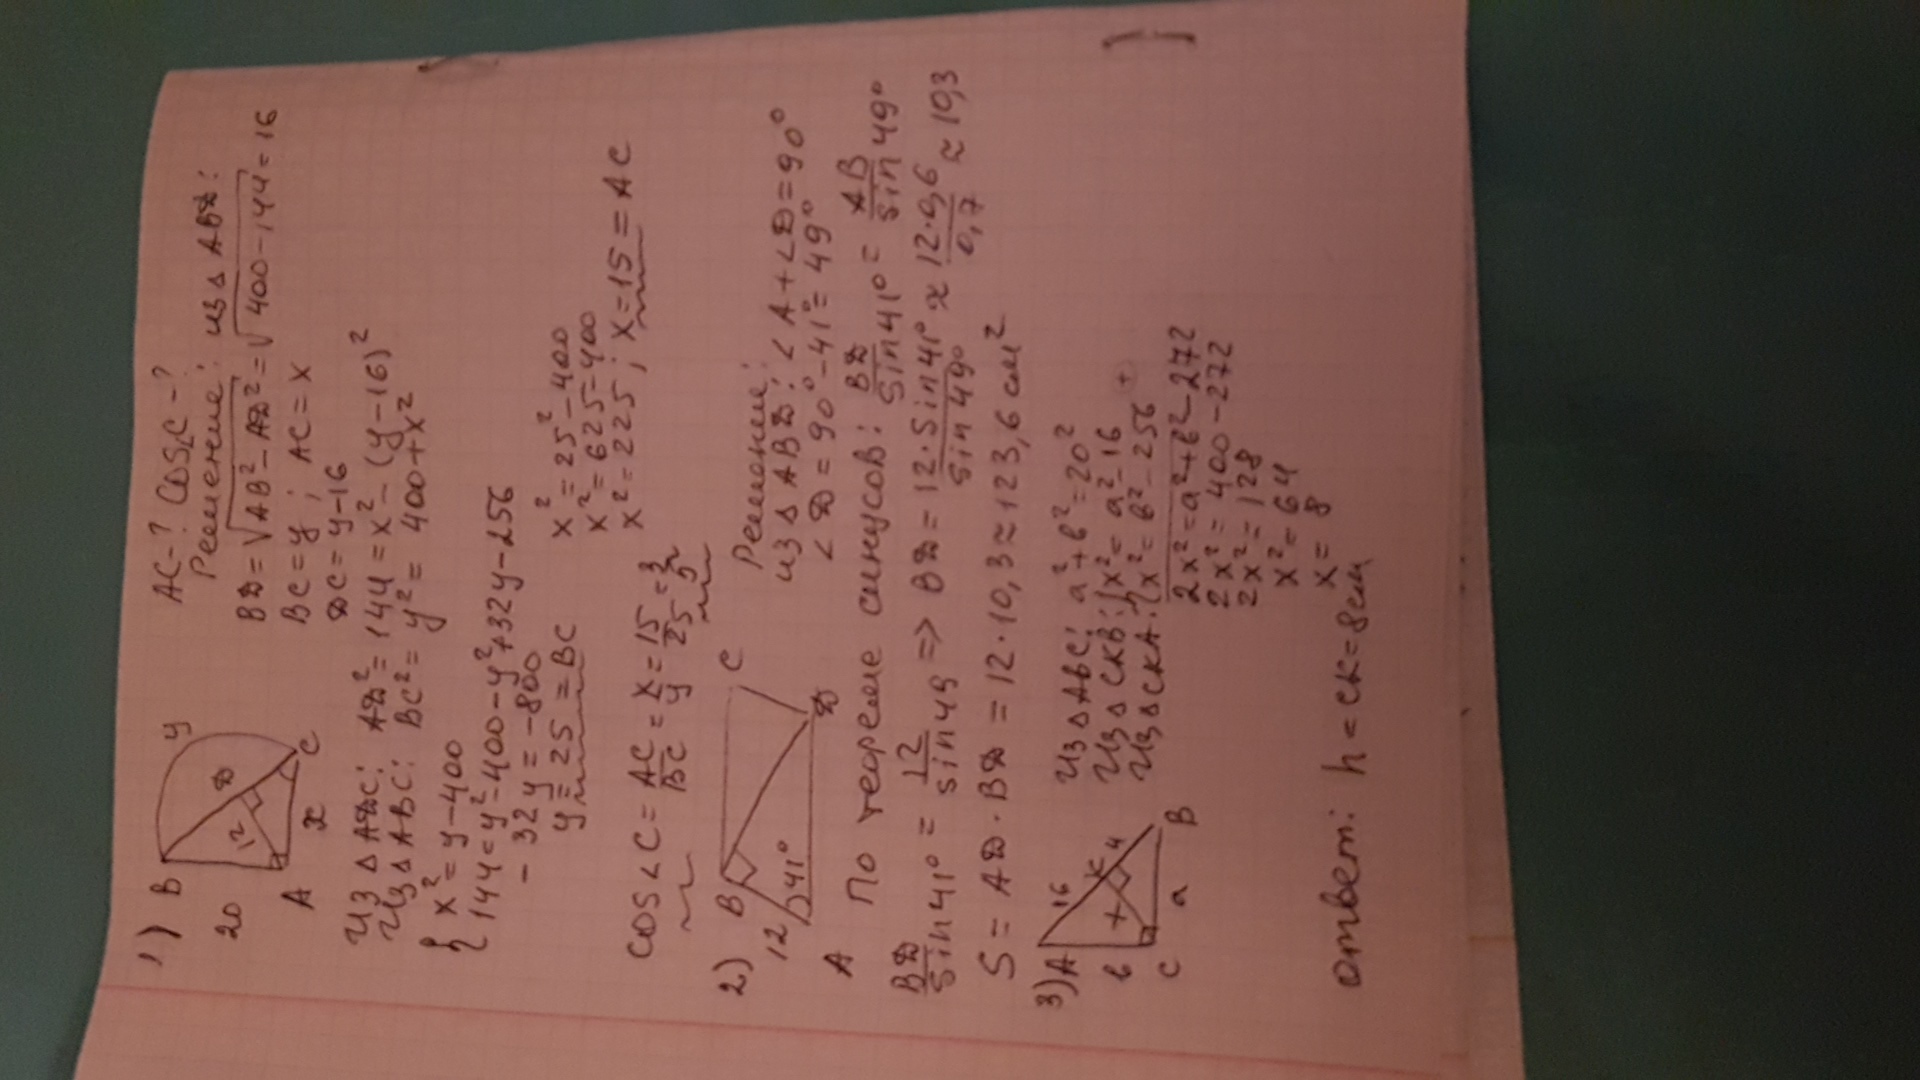 1)
AC-? COS∠C-?
B
y
20
12
D
A
x
C
Решение: из Δ ABD:
BD = √AB² - AD² = √400-144 = 16
BC = y ; AC = x
DC = y-16
Из Δ ADC: AD² = 144 = x² - (y-16)²
Из Δ ABC: BC² = y² = 400+x²
{ x² = y-400
144 = y²-400-y²+32y-256
- 32y = -800
y = 25 = BC
x² = 25² - 400
x² = 625-400
x² = 225 ; x = 15 = AC
COS∠C = AC/BC = x/y = 15/25 = 3/5
2)
B
C
12
41°
A
D
Решение:
из Δ ABD: ∠A+∠D=90°
∠D = 90°-41° = 49°
По теореме синусов: BD/sin41° = AB/sin49°
BD/sin41° = 12/sin49 => BD = 12·sin41°/sin49° ≈ 12·0,6/0,7 ≈ 10,3
S = AD·BD = 12·10,3 ≈ 123,6 см²
3)
A
16
K
4
B
b
x
C
a
Из Δ ABC: a²+b²=20²
Из Δ CKB: { x² = a²-16
Из Δ CKA: { x² = b²-256 +
2x² = a²+b²-272
2x² = 400-272
2x² = 128
x² = 64
x = 8
ответ: h = CK = 8см